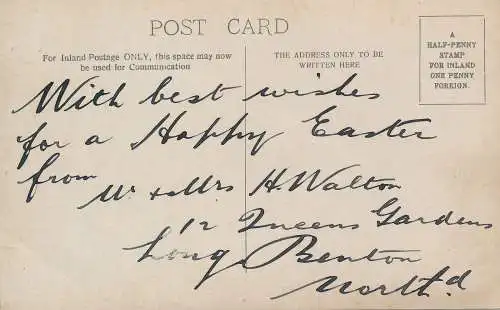 POST CARD
For Inland Postage ONLY, this space may now
be used for Communication
THE ADDRESS ONLY TO BE
WRITTEN HERE
A
HALF-PENNY
STAMP
FOR INLAND
ONE PENNY
FOREIGN.
With best wishes
for a Happy Easter
from
Mr & Mrs H. Walton
12 Queens Gardens
Long Benton
North'd